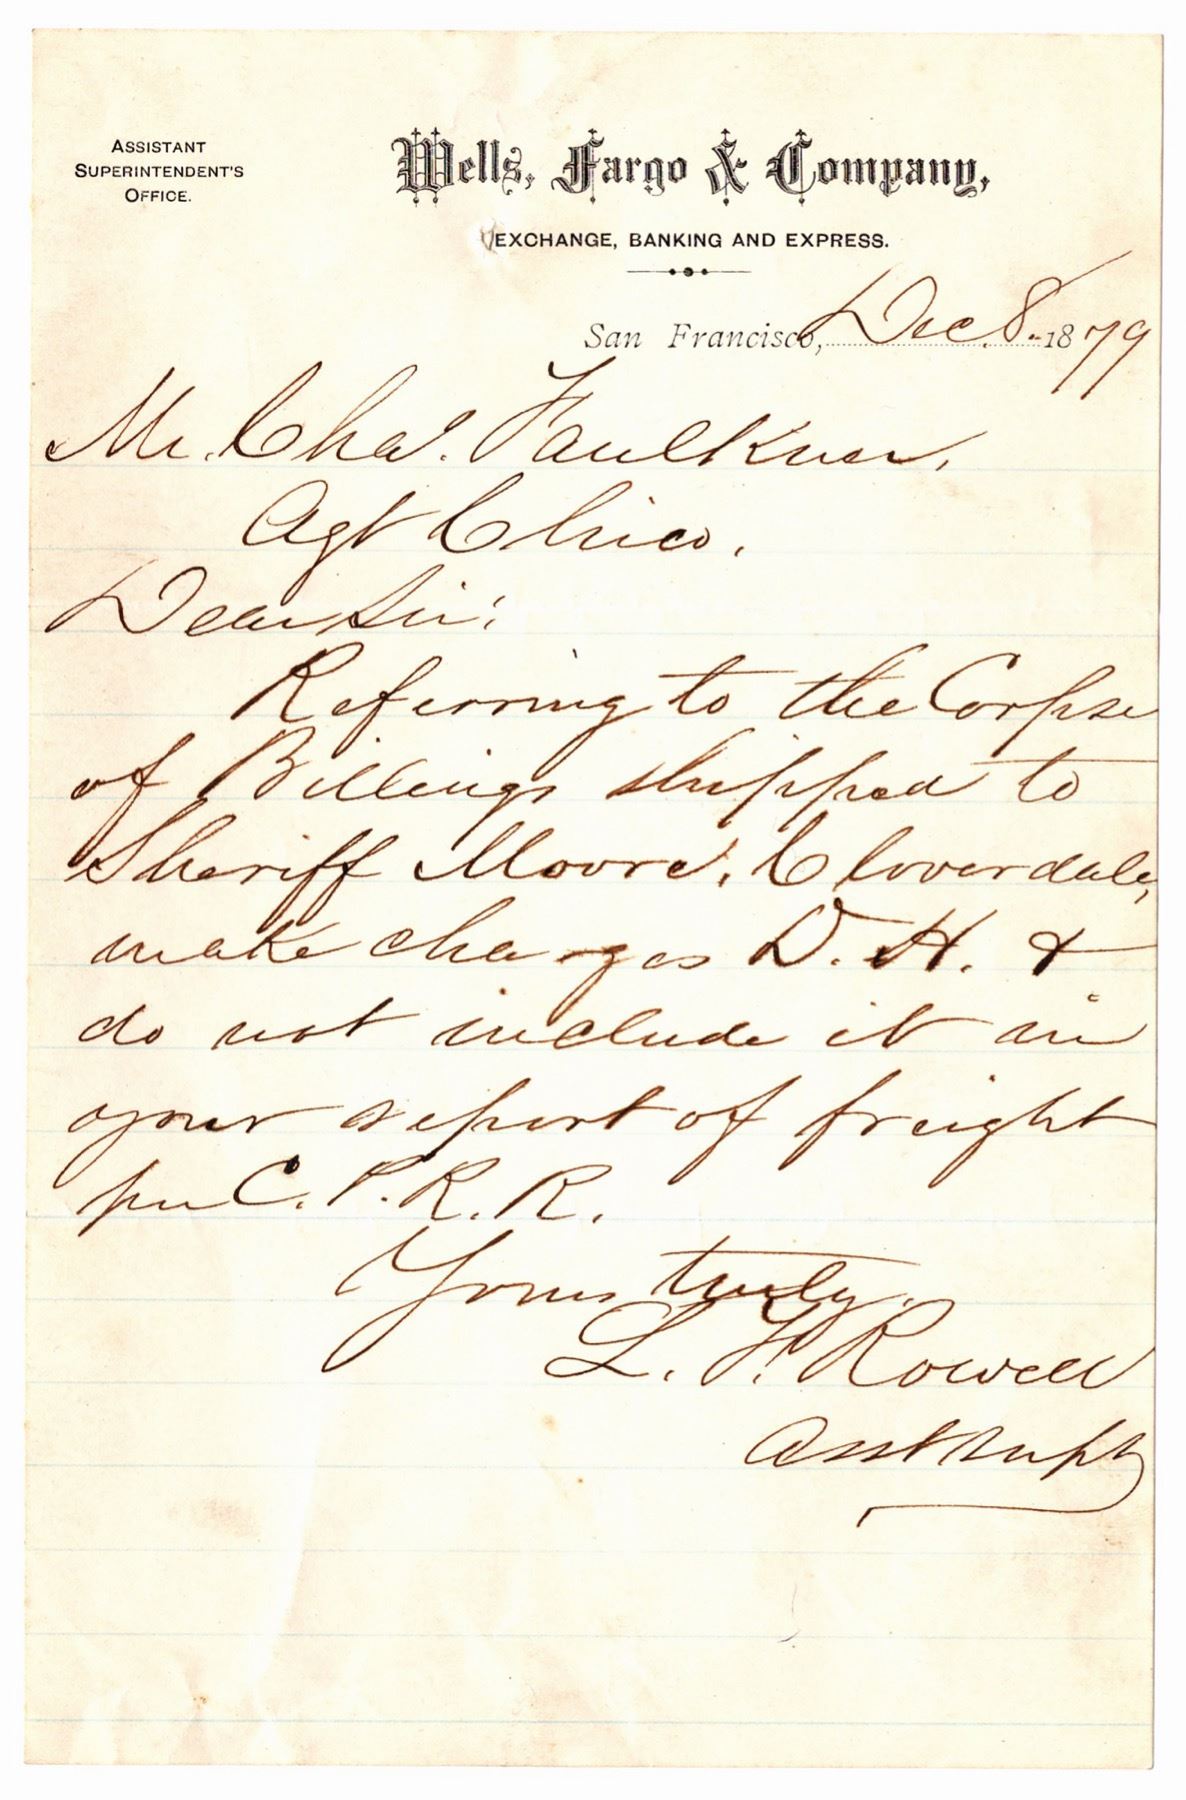 ASSISTANT
SUPERINTENDENT'S
OFFICE.
Wells, Fargo & Company,
EXCHANGE, BANKING AND EXPRESS.
San Francisco, Dec. 8. 1879
Mr. Chas. Faulkner,
Agt Chico.
Dear Sir:
Referring to the Corpse
of Billings shipped to
Sheriff Moore, Cloverdale,
make charges D. H. &
do not include it in
your report of freight
per C. P. R. R.
Yours truly.
L. F. Rowell
Asst Supt